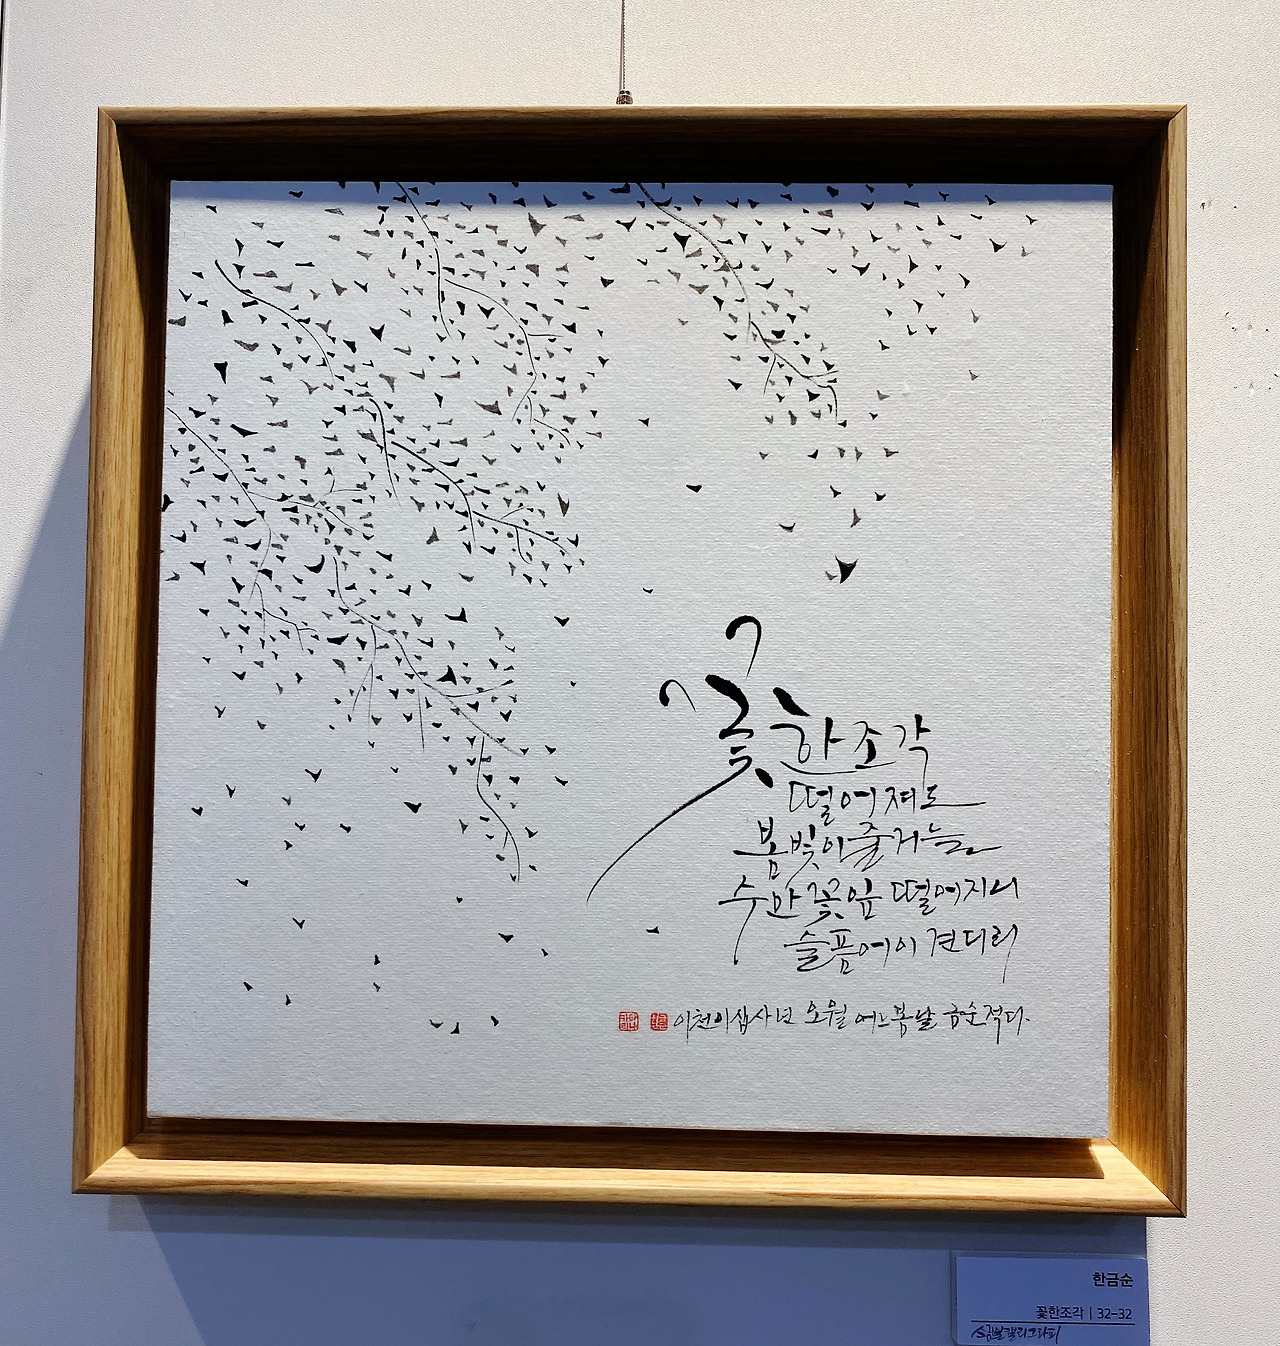 꽃 한 조각
떨어져도
봄빛이 줄거늘
수만 꽃잎 떨어지니
슬픔 어이 견디리
이천이십사년 오월 어느 봄날 금순 적다.
한금순
꽃한조각 | 32-32
캘리그라피